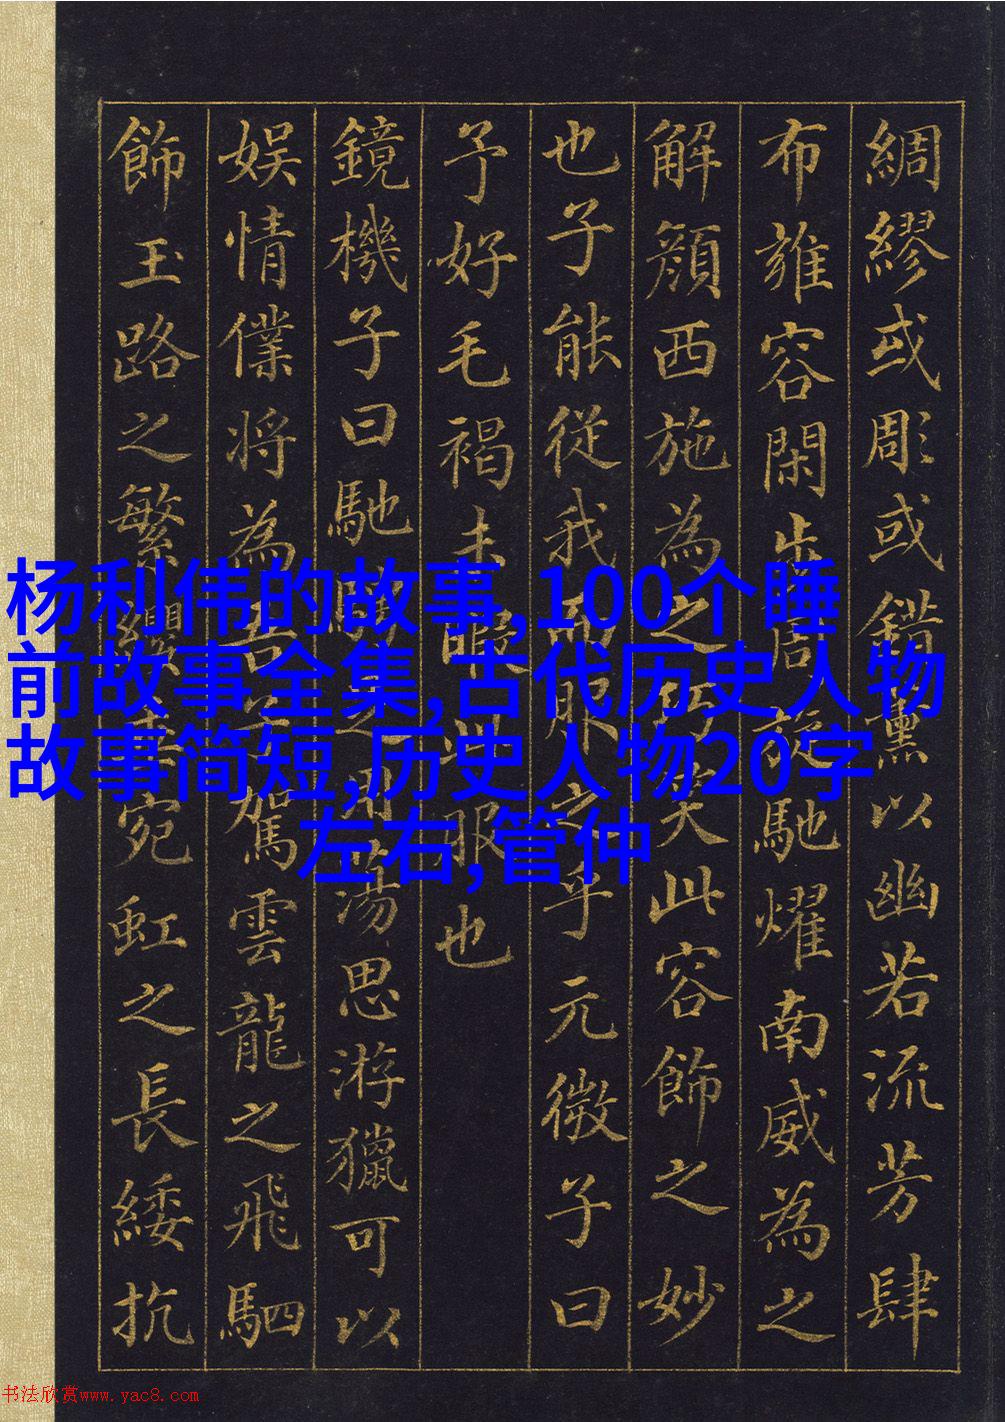 綢繆或彫或錯薰以幽若流芳肆
布雍容閑步周旋馳燿南威為之
解顏西施為之巧笑此容飾之妙
也子能從我而服之乎元微子曰
予好毛褐未暇此服也
鏡機子曰馳騁足用蕩思游獵可以
娛情僕將為吾子駕雲龍之飛駟
飾玉路之繁纓垂宛虹之長綏抗
杨利伟的故事,100个睡
前故事全集,古代历史人物
故事简短,历史人物20字
左右,管仲
书法欣赏www.yac8.com